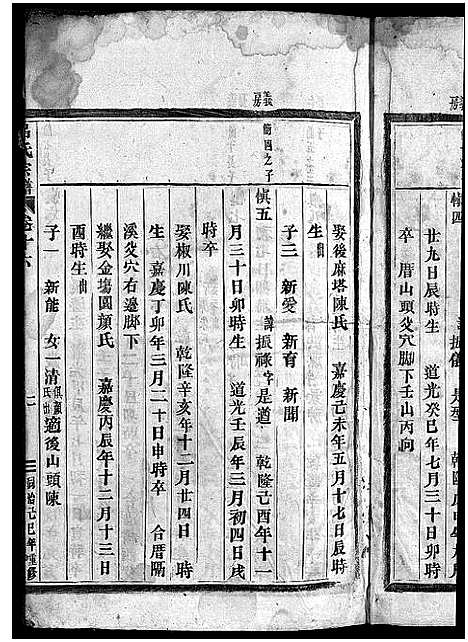 慎四
諱振儀
是
乾隆
廿九日辰時生　道光癸巳年七月三十日卯時
卒　厝山頭爻穴脚下壬山丙向
娶後麻塔陳氏　嘉慶己未年五月十七日辰時
生
子三　新愛　新育　新聞
義房
衡四之子
慎五　諱振祿字是道　乾隆己酉年十一
月三十日卯時生　道光壬辰年三月初四日戌
時卒
娶椒川陳氏　乾隆辛亥年十二月廿四日　時
生　嘉慶丁卯年三月二十日申時卒　合厝隔
溪爻穴右邊脚下
繼娶金塢園顏氏　嘉慶丙辰年十二月十三日
酉時生
子一　新能　女一清俱顏氏出適後山頭陳
呂氏宗譜　卷十六　二　同治己巳年重修